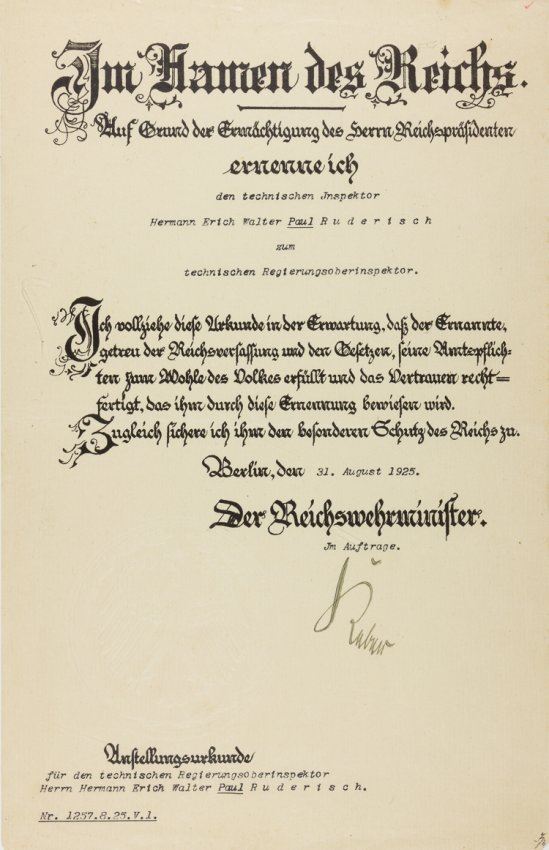 Im Namen des Reichs.
Auf Grund der Ermächtigung des Herrn Reichspräsidenten
ernenne ich
den technischen Jnspektor
Hermann Erich Walter Paul R u d e r i s c h
zum
technischen Regierungsoberinspektor.
Ich vollziehe diese Urkunde in der Erwartung, daß der Ernannte,
getreu der Reichsverfassung und den Gesetzen, seine Amtspflich-
ten zum Wohle des Volkes erfüllt und das Vertrauen recht=
fertigt, das ihm durch diese Ernennung bewiesen wird.
Zugleich sichere ich ihm den besonderen Schutz des Reichs zu.
Berlin, den 31. August 1925.
Der Reichswehrminister.
Jm Auftrage.
Anstellungsurkunde
für den technischen Regierungsoberinspektor
Herrn Hermann Erich Walter Paul R u d e r i s c h.
Nr. 1257.8.25.V.1.